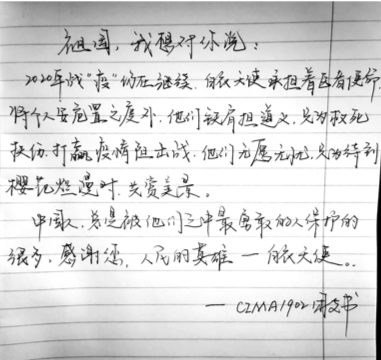 祖国，我想对你说：
2020年战“疫”仍在继续，白衣天使承担着医者使命，
将个人安危置之度外，他们铁肩担道义，只为救死
扶伤，打赢疫情阻击战，他们无愿无忧，只为待到
樱花烂漫时，共赏美景。
中国人，总是被他们之中最勇敢的人保护的
很好，感谢您，人民的英雄——白衣天使。
——CZMA1902 文书